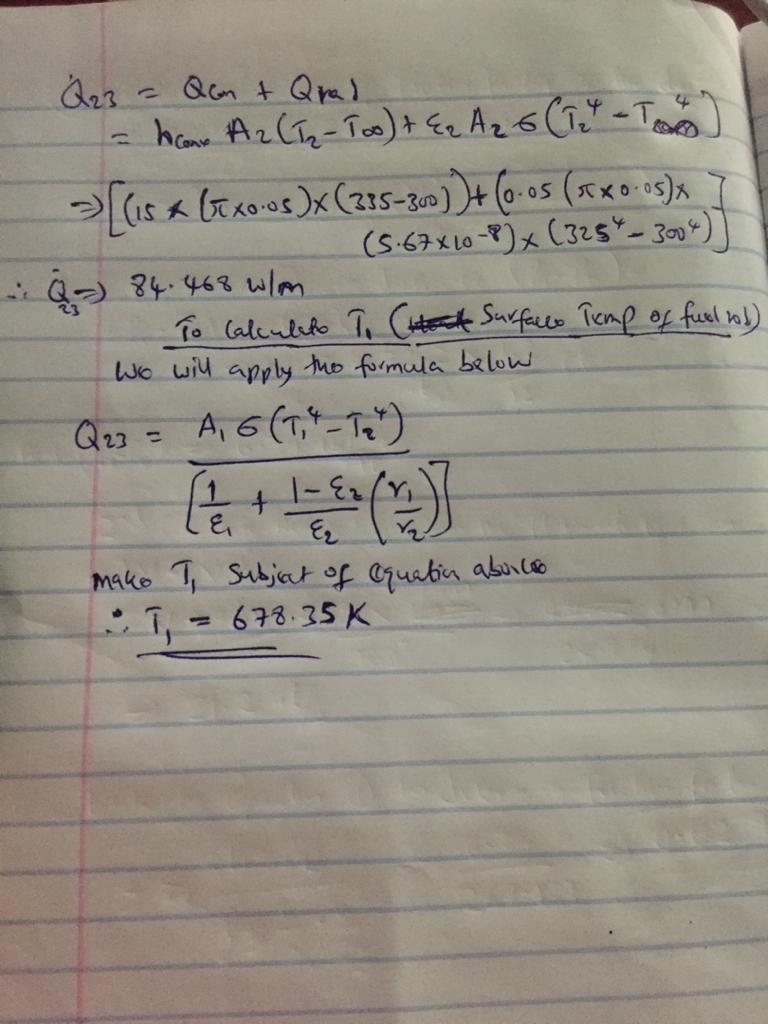 Q̇23 = Qcon + Qrad
= hconv A2 (T2 - T∞) + ε2 A2 σ (T2⁴ - T⁴)
⇒ [(15 × (π×0.05) × (335-300)) + (0.05 (π×0.05) ×
(5.67×10-8) × (325⁴ - 300⁴)]
∴ Q̇23 ⇒ 84.468 W/m
To Calculate T1 (Surface Temp of fuel rod)
We will apply the formula below
Q23 = A1 σ (T1⁴ - T2⁴)
[1/ε1 + 1-ε2/ε2 (r1/r2)]
make T1 Subject of equation above
∴ T1 = 678.35 K